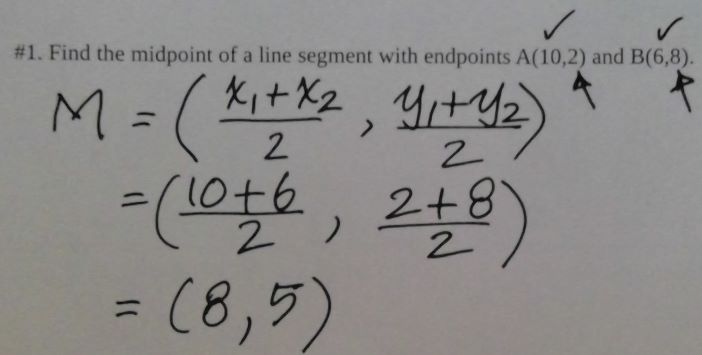 #1. Find the midpoint of a line segment with endpoints A(10,2) and B(6,8).
M = ( x₁+x₂ / 2 , y₁+y₂ / 2 )
= ( 10+6 / 2 , 2+8 / 2 )
= (8,5)